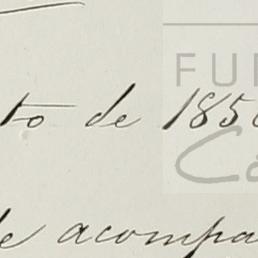 to de 185
de acompa